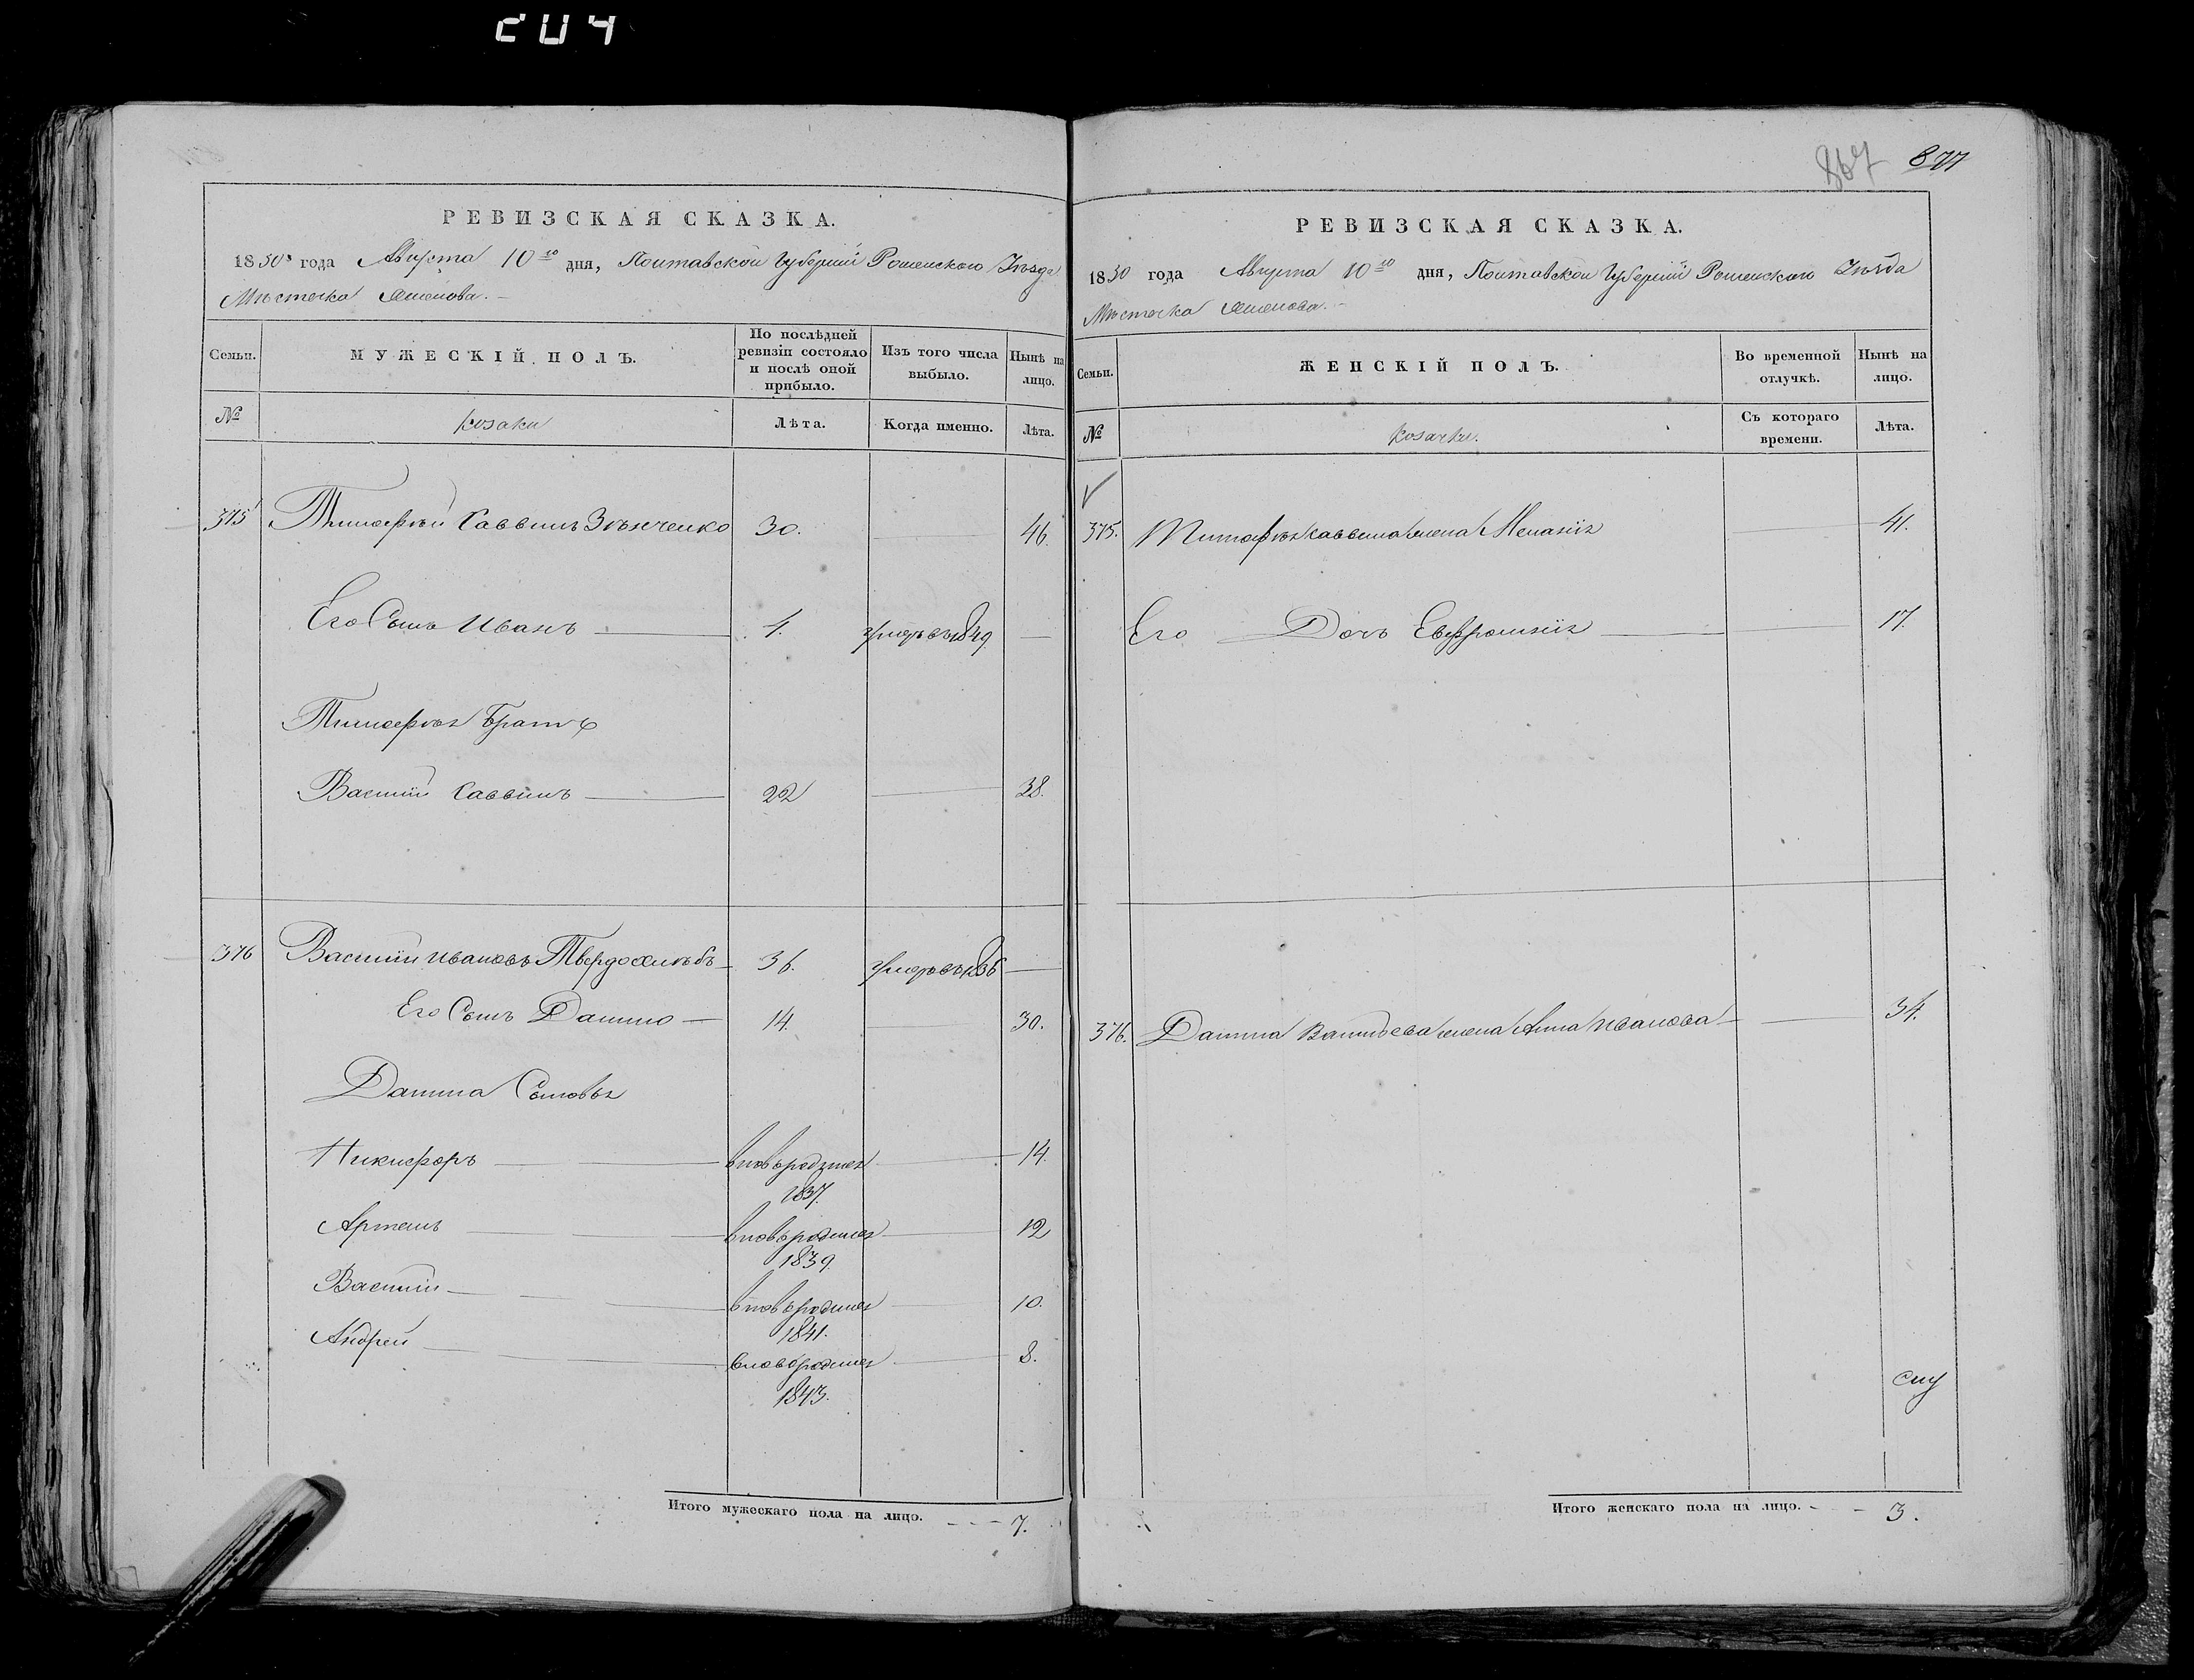 204
867 877
РЕВИЗСКАЯ СКАЗКА.
1850 года Августа 10го дня, Полтавской Губерніи Роменскаго Уѣзда
Мѣстечка
Семьи.
МУЖЕСКІЙ ПОЛЪ.
По послѣдней ревизіи состояло и послѣ оной прибыло.
Изъ того числа выбыло.
Нынѣ на лицо.
№
козаки
Лѣта.
Когда именно.
Лѣта.
375 Тимофей Саввинъ 30. 46.
Его Сынъ Иванъ 1. умеръ въ 1849
Тимофея Братъ
Василій Саввинъ 22 38.
376 Василій Ивановъ Твердохлѣбъ 36. умеръ въ 1836
Его Сынъ Данило 14. 30.
Данила Сыновья
Никифоръ 14.
1837.
Артемъ вновьродился 12
1839.
Василій вновьродился 10.
1841.
Андрей вновьродился 8.
1843.
Итого мужескаго пола на лицо. 7.
РЕВИЗСКАЯ СКАЗКА.
1850 года Августа 10го дня, Полтавской Губерніи Роменскаго Уѣзда
Мѣстечка
Семьи.
ЖЕНСКІЙ ПОЛЪ.
Во временной отлучкѣ.
Нынѣ на лицо.
№
козачки.
Съ котораго времени.
Лѣта.
375. Тимофея Саввина жена Меланія 41.
Его Дочь Евфросинія 17.
376. Данила Васильева жена Анна Иванова 34.
Итого женскаго пола на лицо. 3.